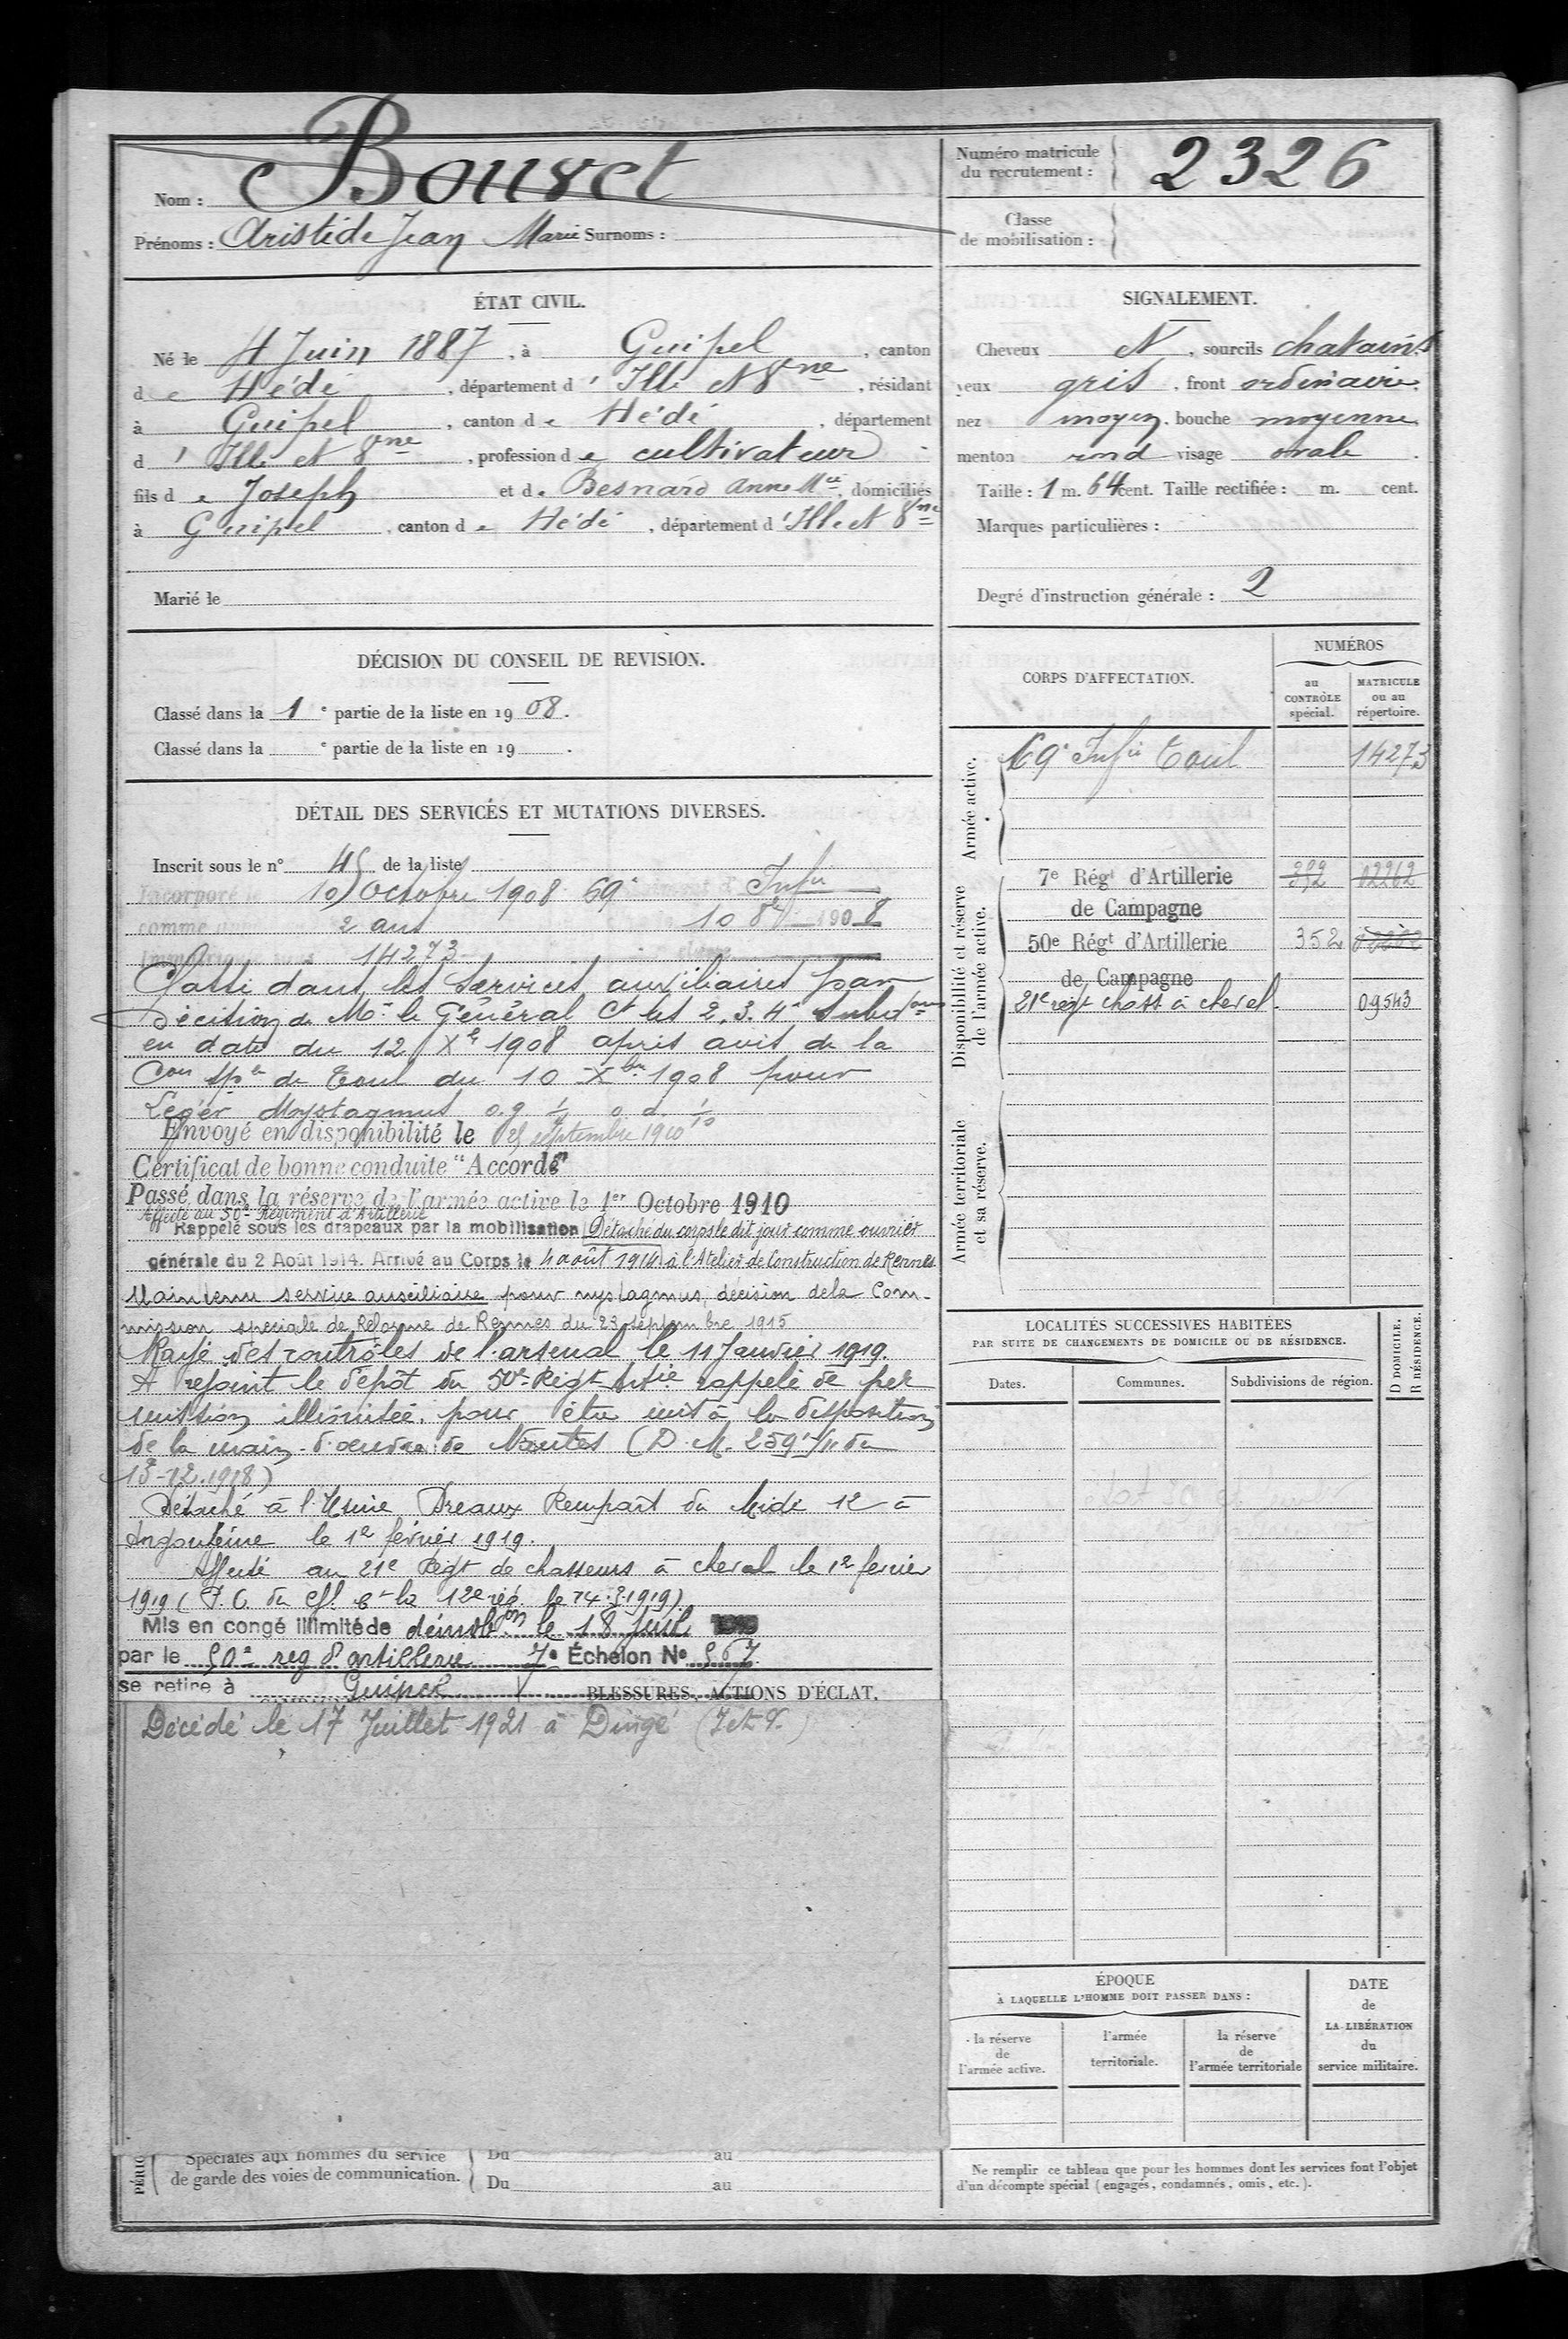 Nom : Bouvet
Prénoms : Aristide Jean Marie Surnoms :
Numéro matricule du recrutement : 2326
Classe de mobilisation :
ÉTAT CIVIL.
Né le 4 Juin 1887, à Guipel, canton
de Hédé, département d'Ille et Vne, résidant
à Guipel, canton de Hédé, département
d'Ille et Vne, profession de cultivateur
fils de Joseph et de Besnard Anne Mie, domiciliés
à Guipel, canton de Hédé, département d'Ille et Vne
Marié le
SIGNALEMENT.
Cheveux et, sourcils chatains
yeux gris, front ordinaire,
nez moyen, bouche moyenne
menton rond visage ovale.
Taille : 1 m. 64 cent. Taille rectifiée : m. cent.
Marques particulières :
Degré d'instruction générale : 2
DÉCISION DU CONSEIL DE REVISION.
Classé dans la 1e partie de la liste en 1908.
Classé dans la e partie de la liste en 19 .
DÉTAIL DES SERVICES ET MUTATIONS DIVERSES.
Inscrit sous le n° 45 de la liste
Incorporé le 10 Octobre 1908 69e Infie
comme 2 ans 10 8bre 1908
14273
Passé dans les Services auxiliaires par
décision de Mr le Général Ct les 2. 3. 4e Subdons
en date du 12 Xbre 1908 après avis de la
Con Sple de Toul du 10 Xbre 1908 pour
Léger Nystagmus o.g. o.d. 1/10
Envoyé en disponibilité le 25 septembre 1910
Certificat de bonne conduite "Accordé"
Passé dans la réserve de l'armée active le 1er Octobre 1910
Affecté au 50e Régiment d'Artillerie
Rappelé sous les drapeaux par la mobilisation Détaché du corps le dit jour comme ouvrier
générale du 2 Août 1914. Arrivé au Corps le 4 août 1914 à l'Atelier de Construction de Rennes
Maintenu service auxiliaire pour nystagmus, décision de la Com-
mission spéciale de Réforme de Rennes du 23 septembre 1915
Rayé des contrôles de l'arsenal le 11 Janvier 1919.
A rejoint le dépôt du 50e Régt Artie rappelé de per
mission illimitée, pour être mis à la disposition
de la main-d'œuvre de Nantes (D. M. 259 du
13-12-1918)
Détaché à l'Usine Dreaux Rempart du Midi 12 à
Angoulême le 1er février 1919.
Affecté au 21e Régt de chasseurs à cheval le 12 février
1919 ( la 12e rég. 1919)
Mis en congé illimité de démobon le 18 Juil
par le 50e reg d'artillerie 7e Échelon No 567
se retire à Guipel
BLESSURES, ACTIONS D'ÉCLAT.
Décédé le 17 Juillet 1921 à Dingé (I et V.)
Spéciales aux hommes du service de garde des voies de communication.
Du au
Du au
CORPS D'AFFECTATION.
NUMÉROS
au CONTRÔLE spécial.
MATRICULE ou au répertoire.
Armée active.
69e Infie Toul 14273
Disponibilité et réserve de l'armée active.
7e Régt d'Artillerie 292 02262
de Campagne
50e Régt d'Artillerie 352
de Campagne
21e régt chass à cheval 09543
Armée territoriale et sa réserve.
LOCALITÉS SUCCESSIVES HABITÉES
PAR SUITE DE CHANGEMENTS DE DOMICILE OU DE RÉSIDENCE.
Dates. Communes. Subdivisions de région.
D DOMICILE.
R RÉSIDENCE.
ÉPOQUE
À LAQUELLE L'HOMME DOIT PASSER DANS :
la réserve de l'armée active.
l'armée territoriale.
la réserve de l'armée territoriale
DATE de LA LIBÉRATION du service militaire.
Ne remplir ce tableau que pour les hommes dont les services font l'objet
d'un décompte spécial (engagés, condamnés, omis, etc.).